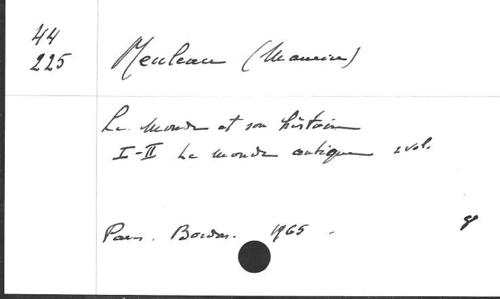 44
225
Meuleau (Maurice)
Le Monde et son histoire
I-II Le monde antique 2 vol.
Paris. Bordas. 1965.